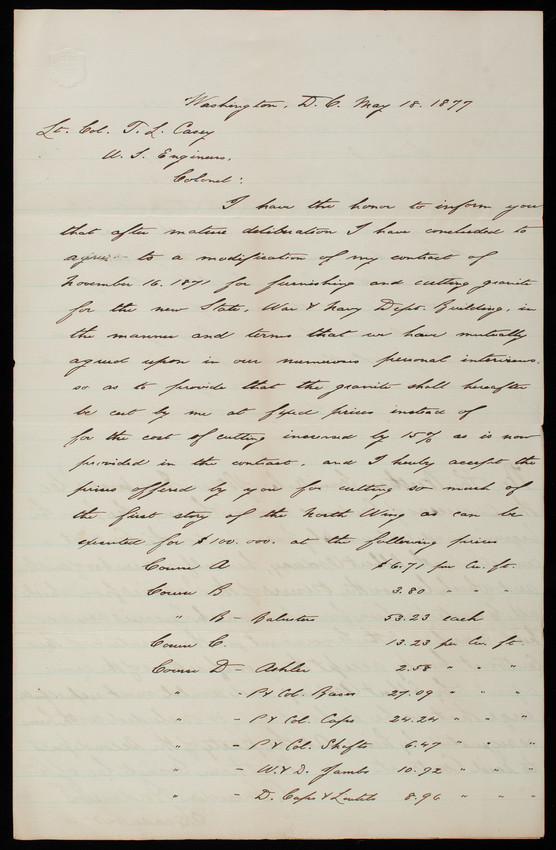 Washington, D.C. May 18. 1877
Lt. Col. T. L. Casey
U. S. Engineers.
Colonel:
I have the honor to inform you
that after mature deliberation I have concluded to
agree to a modification of my contract of
November 16. 1871 for furnishing and cutting granite
for the new State, War & Navy Dept. Building, in
the manner and terms that we have mutually
agreed upon in our numerous personal interviews.
so as to provide that the granite shall hereafter
be cut by me at fixed prices instead of
for the cost of cutting increased by 15% as is now
provided in the contract. and I hereby accept the
prices offered by you for cutting so much of
the first story of the North Wing as can be
executed for $100.000. at the following prices
Course A $6.71 per cu. ft.
Course B 3.80 " "
" B - Balusters 53.23 each
Course C. 13.23 per cu. ft.
Course D - Ashler 2.58 " " "
" - P & Col. Bases 27.09 " " "
" - P & Col. Caps 24.24 " " "
" - P & Col. Shafts 6.47 " " "
" - W. & D. Jambs 10.92 " " "
" - D. Caps & Lintels 8.96 " " "